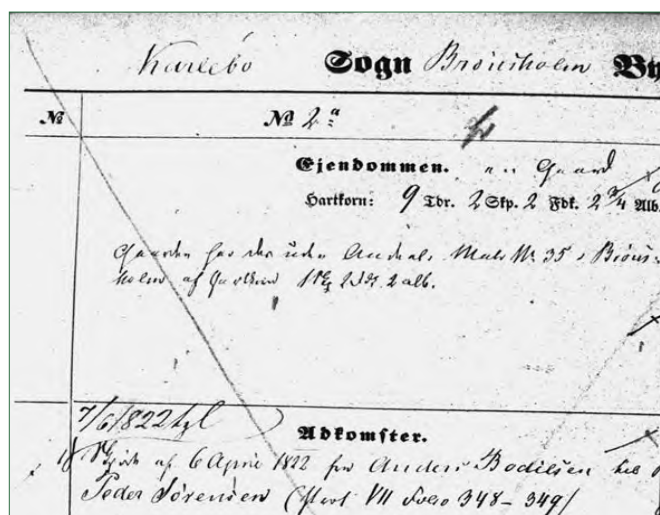 Karlebo Sogn Brönsholm By
№ № 2a
Ejendommen. en Gaard
Hartkorn: 9 Tdr. 2 Skp. 2 Fdk. 2 3/4 Alb.
Gaarden har des uden Andel i Matr. Nr. 35 i Bröns-
holm af Hartkorn 1 Skp. 2 Fdk. 2 alb.
7/6 1822
Adkomster.
Skjöde af 6 April 1822 fra Anders Bodilsen til
Peder Sørensen (Prot VII Folio 348-349)